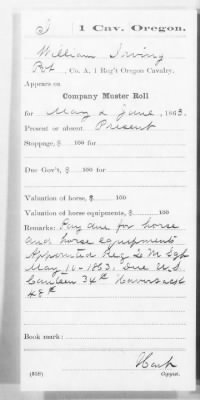 I | 1 Cav. | Oregon.
William Irving
Pvt, Co. A, 1 Reg't Oregon Cavalry.
Appears on
Company Muster Roll
for May & June, 1863.
Present or absent Present
Stoppage, $ 100 for
Due Gov't, $ 100 for
Valuation of horse, $ 100
Valuation of horse equipments, $ 100
Remarks: Pay due for horse
and horse equipments
Appointed Reg. Q M Sgt
May 16 - 1863. Due U.S.
Canteen 34¢ Haversack
48¢
Book mark:
(858) Copyist.